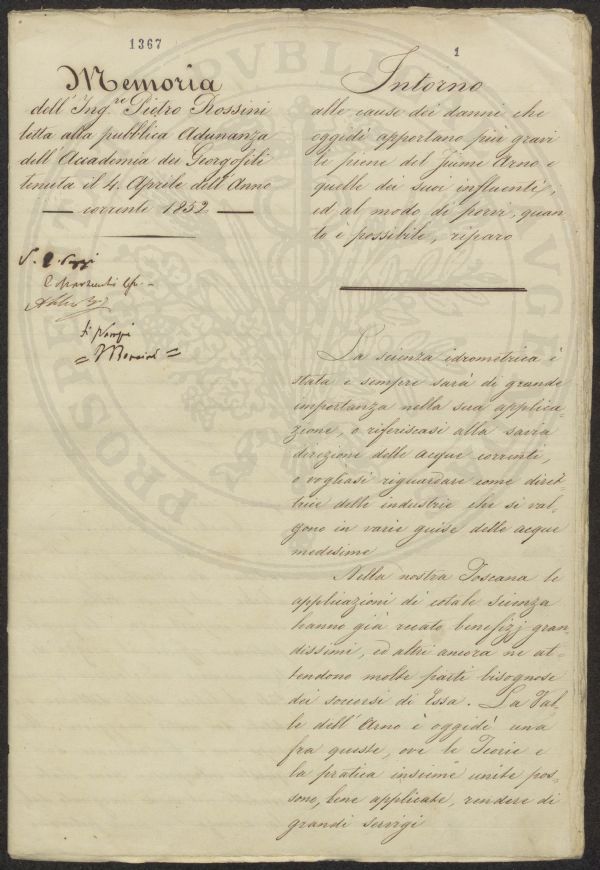 1367
Memoria
dell' Ing.re Pietro Rossini
letta alla pubblica Adunanza
dell' Accademia dei Georgofili
tenuta il 4. Aprile dell' Anno
— corrente 1852 —
1
Intorno
alle cause dei danni che
oggidì apportano più gravi
le piene del fiume Arno e
quelle dei suoi influenti;
ed al modo di porvi, quan
to è possibile, riparo
La scienza idrometrica è
stata e sempre sarà di grande
importanza nella sua applica=
zione, o riferiscasi alla savia
direzione delle acque correnti,
o vogliasi riguardare come diret=
trice delle industrie che si val=
gono in varie guise delle acque
medesime
Nella nostra Toscana le
applicazioni di cotale scienza
hanno già recato benefizj gran=
dissimi, ed altri ancora ne at=
tendono molte parti bisognose
dei soccorsi di Essa. La Val=
le dell' Arno è oggidì una
fra queste, ove le Teorie e
la pratica insieme unite pos=
sono, bene applicate, rendere di
grandi servigi
PROSPERITÀ PUBBLICA AUG